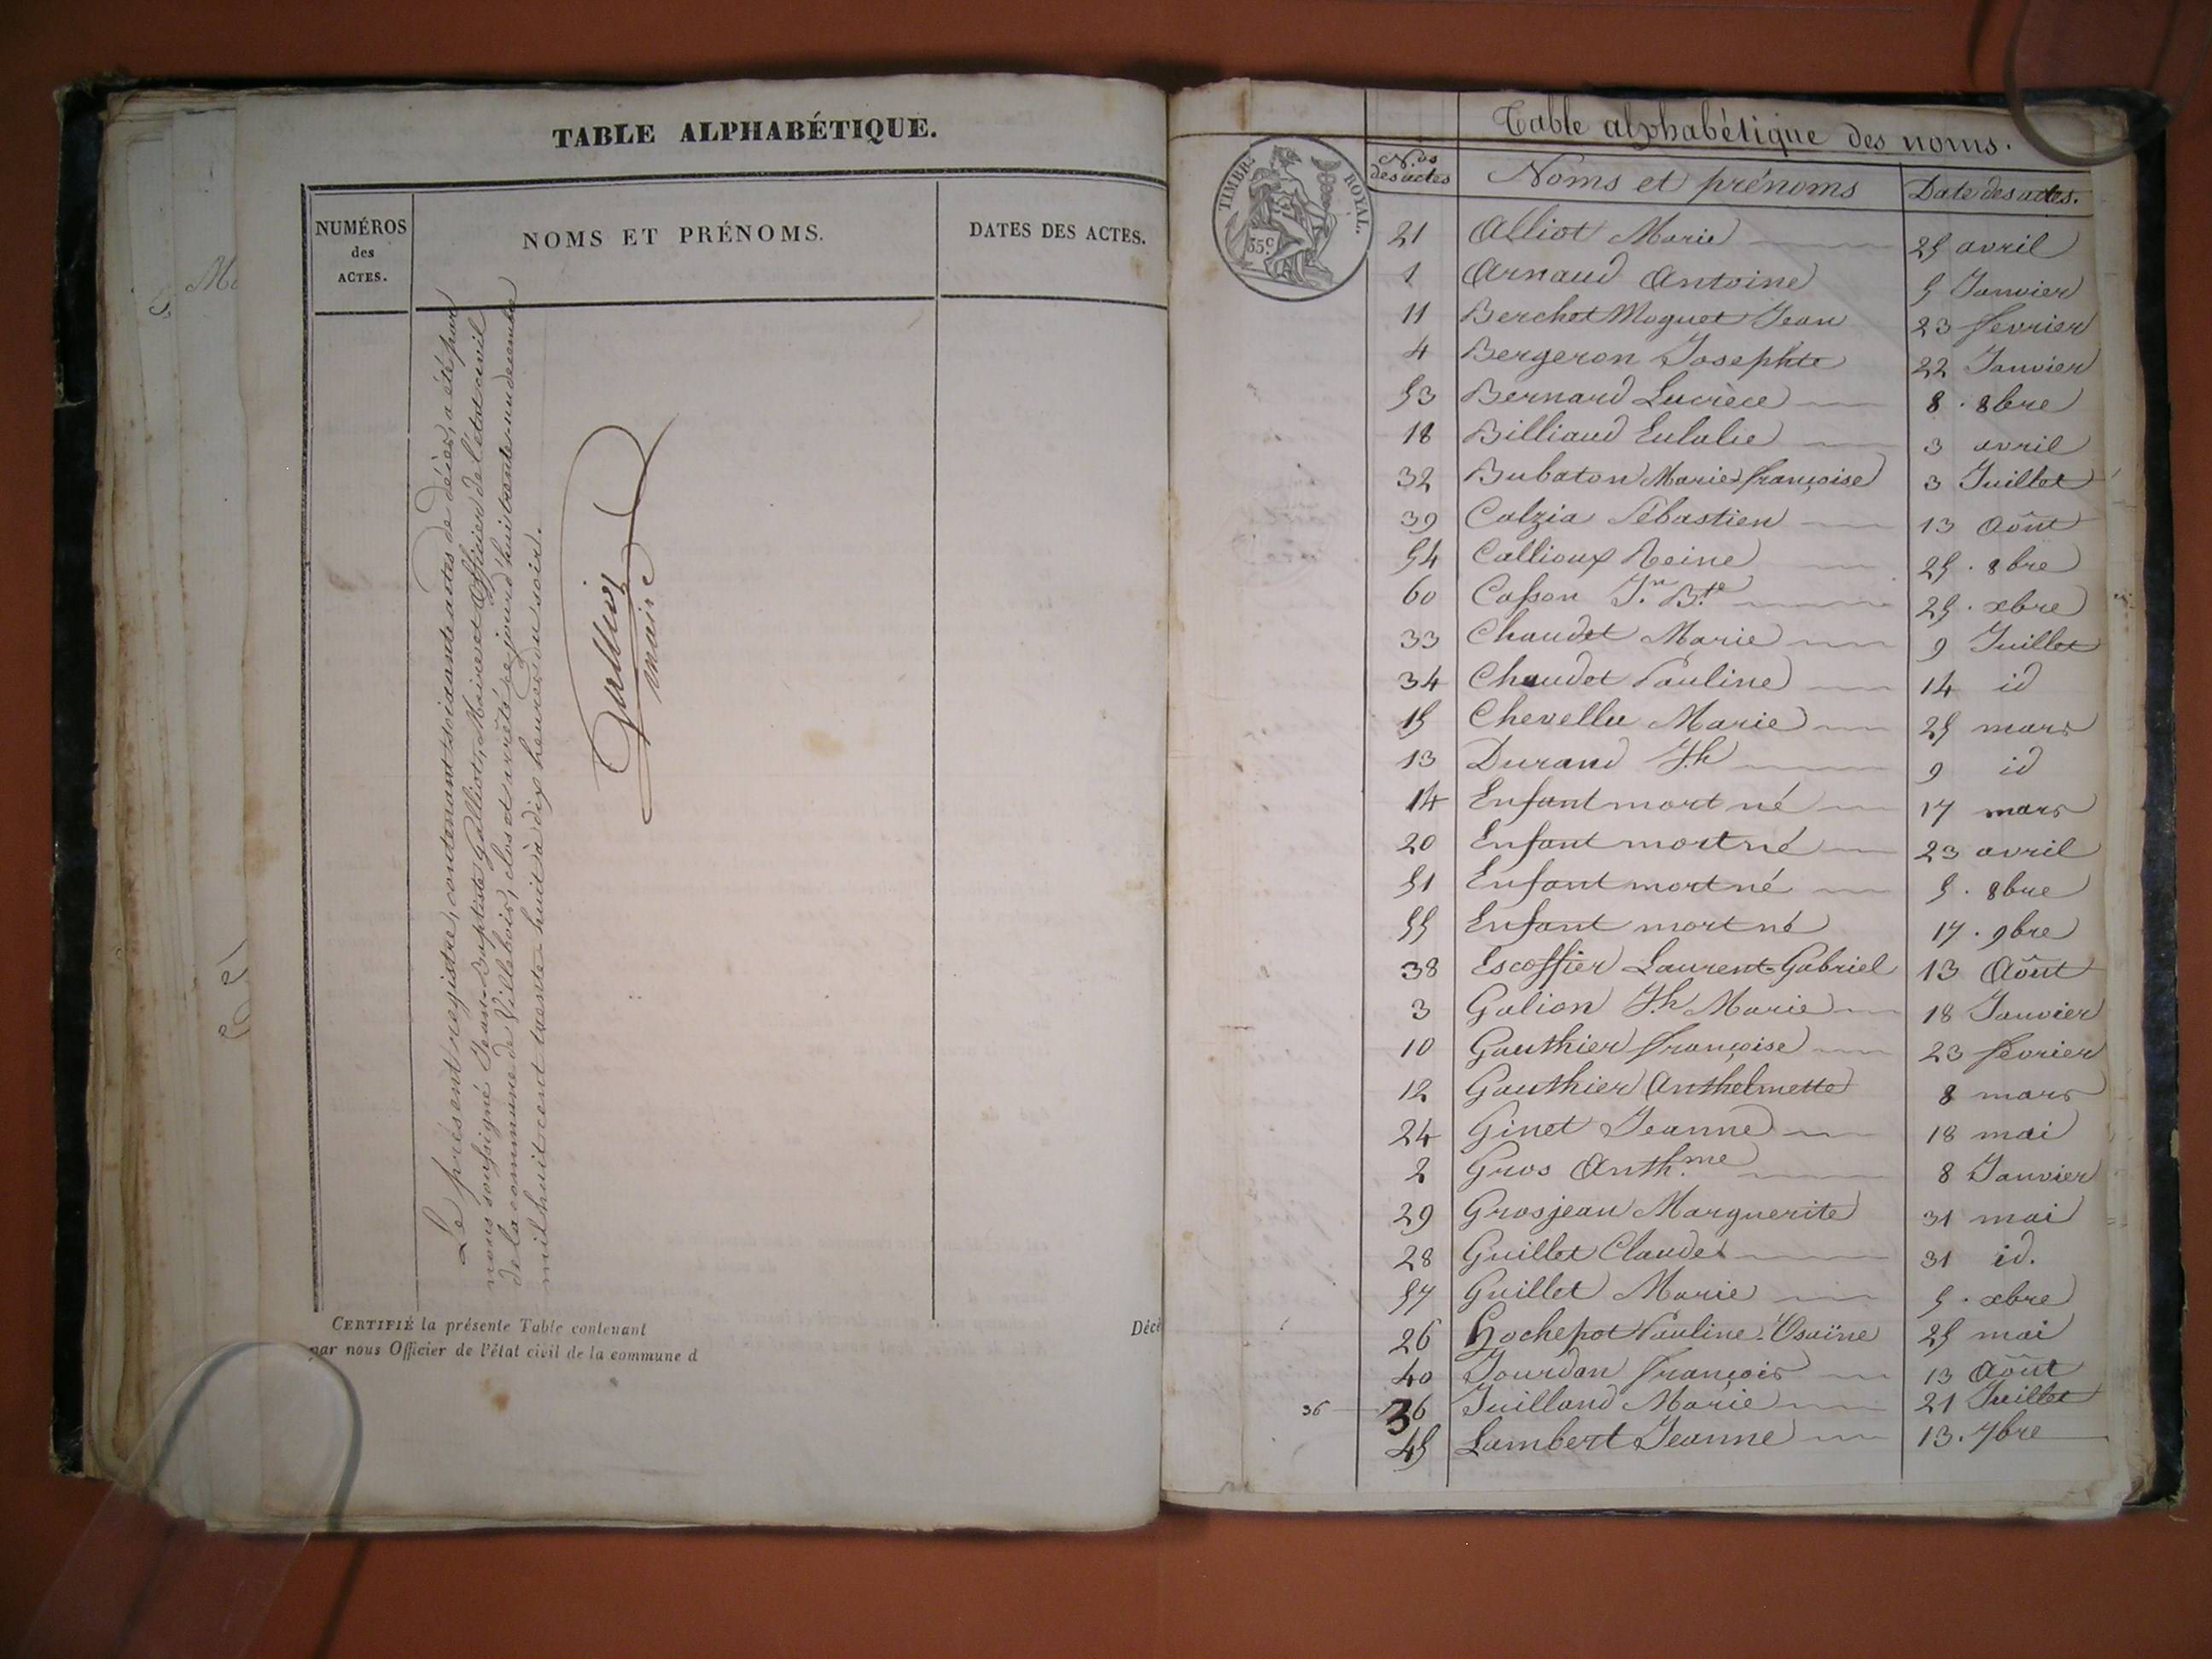 TABLE ALPHABÉTIQUE.
NUMÉROS
des
ACTES.
NOMS ET PRÉNOMS.
DATES DES ACTES.
Le présent registre, contenant soixante actes de décès, a été par
nous soussigné Jean-Baptiste Galliot, Maire et Officier de l'état civil
de la commune de Villebois, clos et arrêté ce jourd'hui trente-un décembre
mil huit cent trente-huit à dix heures du soir.
Galliot
maire
CERTIFIÉ la présente Table contenant
Décè
par nous Officier de l'état civil de la commune d
Table alphabétique des noms.
TIMBRE ROYAL.
35c.
N.os des actes Noms et prénoms Date des actes.
21 Alliot Marie 25 avril
1 Arnaud Antoine 5 Janvier
11 Berchet Moguet Jean 23 fevrier
4 Bergeron Josephte 22 Janvier
53 Bernard Lucrèce 8. 8bre
18 Billiaud Eulalie 3 avril
32 Bubaton Marie françoise 3 Juillet
39 Calzia Sébastien 13 Août
54 Callioux Reine 25. 8bre
60 Casson J.n B.te 25. xbre
33 Chaudet Marie 9 Juillet
34 Chaudet Pauline 14 id
15 Chevellu Marie 25 mars
13 Durand J.h 9 id
14 Enfant mort né 17 mars
20 Enfant mort né 23 avril
51 Enfant mort né 5. 8bre
55 Enfant mort né 17. 9bre
38 Escoffier Laurent-Gabriel 13 Août
3 Galion J.h Marie 18 Janvier
10 Gauthier françoise 23 fevrier
12 Gauthier Anthelmette 8 mars
24 Ginet Jeanne 18 mai
2 Gros Anth.me 8 Janvier
29 Grosjean Marguerite 31 mai
28 Guillet Claude 31 id.
57 Guillet Marie 5. xbre
26 Hochepot Pauline-Osaïne 25 mai
40 Jourdan françois 13 Août
36 36 Juilland Marie 21 Juillet
45 Lambert Jeanne 13. 7bre